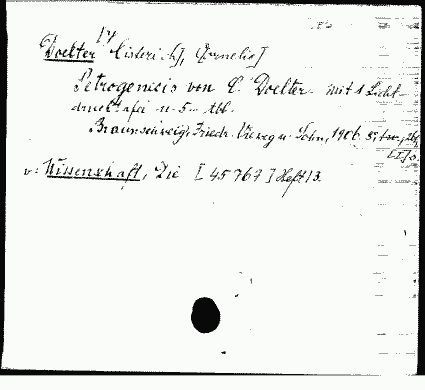 Doelter [Cisterich], Cornelio]
Petrogenesis von C. Doelter. mit 1 Licht-
drucktafel u. 5 Abb.
Braunschweig, Friedr. Vieweg u. Sohn, 1906.
v: Wissenschaft, Die [45767] Heft 13.